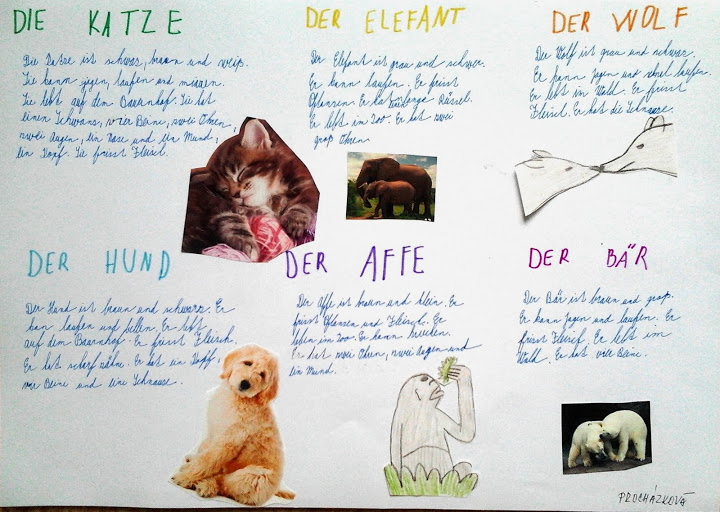 DIE KATZE
Die Katze ist schwarz, braun und weiß.
Sie kann jagen, laufen und miauen.
Sie lebt auf dem Bauernhof. Sie hat
einen Schwanz, vier Beine, zwei Ohren,
zwei Augen, ein Nase und ein Mund,
ein Kopf. Sie frisst Fleisch.
DER ELEFANT
Der Elefant ist grau und schwer.
Er kann laufen. Er frisst
Pflanzen. Er lange Rüssel.
Er lebt im Zoo. Er hat zwei
groß Ohren.
DER WOLF
Der Wolf ist grau und schwarz.
Er kann jagen und laufen.
Er lebt im Wald. Er frisst
Fleisch. Er hat die Schnauze.
DER HUND
Der Hund ist braun und schwarz. Er
kan laufen und bellen. Er lebt
auf dem Bauernhof. Er frisst Fleisch.
Er hat scharf zähne. Er hat ein Kopf,
vier Beine und eine Schnauze.
DER AFFE
Der Affe ist braun und klein. Er
frisst Pflanzen und Fleisch. Er
leben im Zoo. Er kann
Er hat zwei Ohren, zwei Augen und
ein Mund.
DER BÄR
Der Bär ist braun und groß.
Er kann jagen und laufen. Er
frisst Fleisch. Er lebt im
Wald. Er hat vier Beine.
PROCHÁZKOVÁ